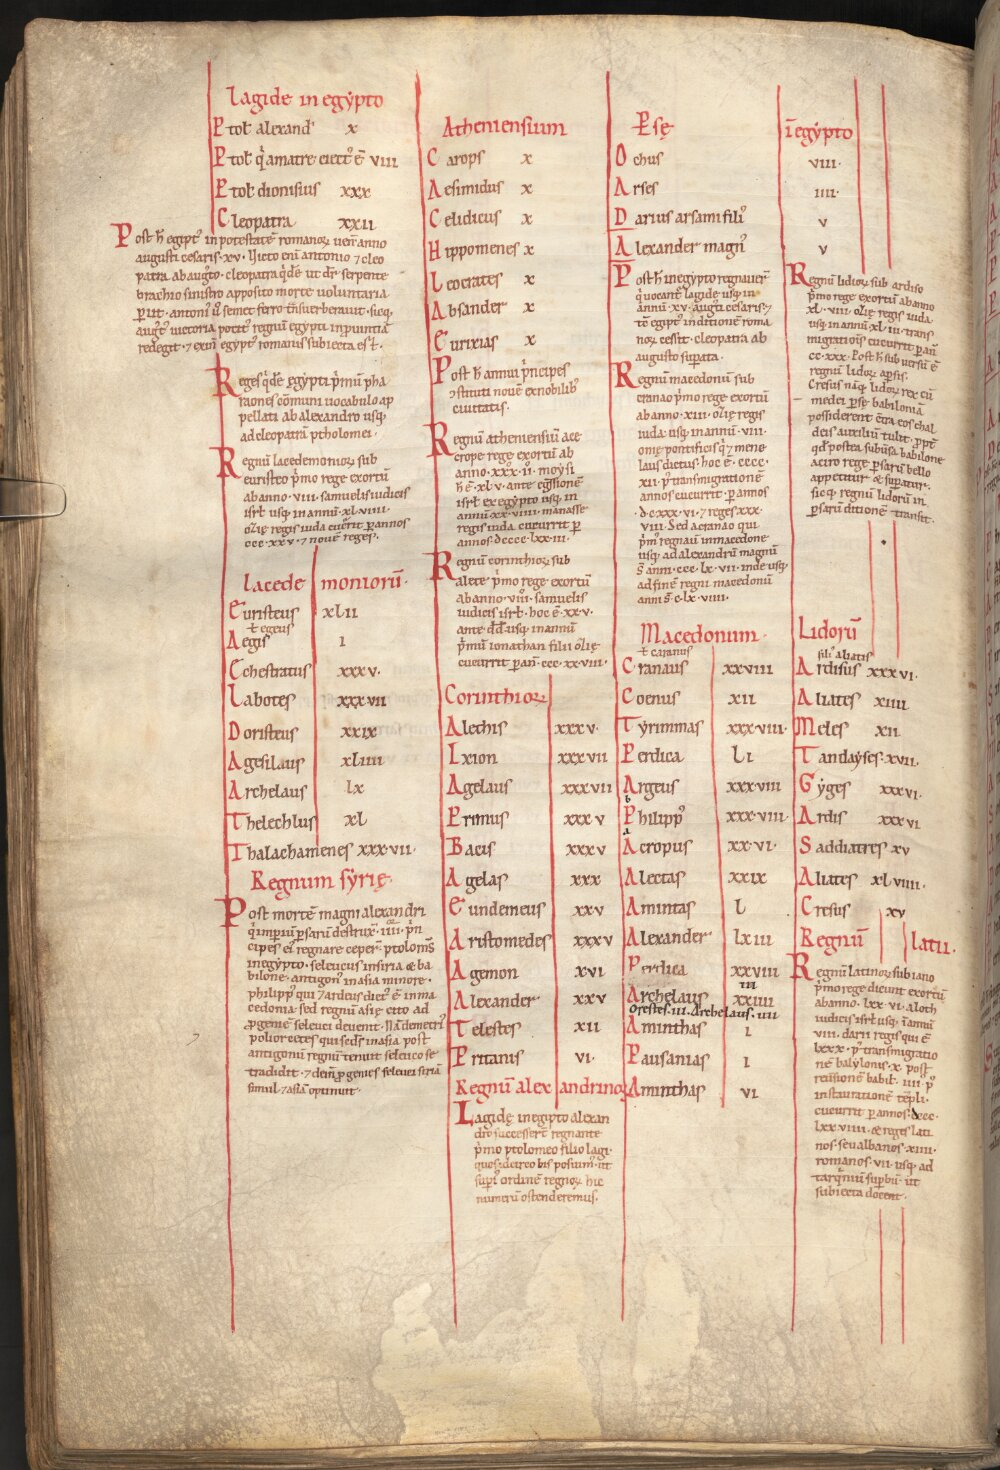 Lagide in egẏpto
Ptol' alexand' x
Ptol' q̇ a matre eiect' ē VIII
Ptol' dionisius xxx
Cleopatra XXII
Post h̄ egipt' in potestatē romanoꝝ ueñ anno
augusti cesaris xv. Uicto eni antonio ⁊ cleo
patra ab auḡto. cleopatra q̇dē ut dr̄ serpente
brachio sinistro apposito morte uoluntaria
ꝑiit. antoni' ū semet ferro t̄nsuerberauit. sicq,
aug' uictoria potit' regnū egypti in puintiā
redegit. ⁊ exin egypt' romanis subiecta est.
Reges q̇dē egẏpti p̄mū pha
raones cōmuni uocabulo ap
pellati ab alexandro usq,
ad cleopatrā ptholomei.
Regnū lacedemonioꝝ sub
euristeo p̄mo rege exortū
ab anno. VIII. samuelis iudicis
isrl usq, in annū. xl. VIIII.
oz̄ię regis iuda cucurit ꝑ annos
ccc. xx v. ⁊ nouē reges.
Lacede moniorū.
Euristeus xl II
ł egeus
Aegis I
Echestratus xxx v.
Labotes xxx VII
Doristeus xxIX
Agesilaus xl IIII
Archelaus lx
Thelechlus xl
Thalachamenes xxx. VII.
Regnum sẏrię.
Post mortē magni alexandri
q̇ imperiū ꝑsarū destrux'. IIII. p̄n
cipes ei' regnare ceper̄. ptolom̄s
in egẏpto. seleucus in siria & ba
bilone. antigon' in asia minore.
philipp' qui ⁊ arideus dict' ē in ma
cedonia. sed regnū asię cito ad
ꝓgeniē seleuci deuenit. Nā demetri'
poliorcetes qui sedit in asia post
antigonū regnū tenuit seleuco se
tradidit. ⁊ dein ꝓgenies seleuci siriā
simul ⁊ asiā optinuit.
Atheniensium
Carops x
Aesimidus x
Celidicus x
Hippomenes x
Leocrates x
Absander x
Eurixias x
Post h̄ annui p̄ncipes
ꝯstituti nouē ex nobilib'
ciuitatis.
Regnū atheniensiū a ce
crope rege exortū ab
anno. xxx. v. moẏsi
h̄ ē xl v. ante egssionē
isrl ex egẏpto usq, in
annū xx. VIIII. manasse
regis iuda cucurrit ꝑ
annos dcccc. lxx. III.
Regnū corinthioꝝ sub
alete p̄mo rege exortū
ab anno. VIII. samuelis
iudicis isrl. hoc ē. xx. v.
ante dd̄ usq, in annū
p̄mū ionathan filii oz̄ię
cucurrit ꝑ añ. ccc. xx. VIII.
Corinthioꝝ
Alethis xxx v.
Ixion xxx VII
Agelaus xxx VII
Primus xxx v
Bacis xxx v
Agelas xxx
Eundemeus xx v
Aristomedes xxx v
Agemon x VI
Alexander xx v
Telestes x II
Pritanis VI.
Regnū alex andrinoꝝ
Lagidę in egipto alexan
dro successer̄t regnante
p̄mo ptolomeo filio lagi
quos ideirco bis posuim'. ut
supi' ordinē regnoꝝ hic
numerū ostenderemus.
Psę
Ochus
Arses
Darius arsami fili'
Alexander magn'
Post h̄ in egypto regnauer̄
q̇ uocant' lagidę usq, in
annū. xv. auḡti cesaris. ⁊
tē egipt' in ditionē roma
noꝝ cessit. cleopatra ab
augusto supata.
Regnū macedonū sub
cranao p̄mo rege exortū
ab anno. XIII. oz̄ię regis
iuda usq, in annū. VIII.
onię pontificis q̇ ⁊ mene
laus dictus. hoc ē. cccc.
XII. p' transmigrationē
annos cucurrit. ꝑ annos
dc xxx VI. ⁊ reges xxx.
VIII. Sed a cranao qui
p̄m' regnauit in macedone
usq, ad alexandrū magnū
s̄ anni. ccc. lx. VII. inde usq,
ad finē regni macedonū
anni s̄ c. lx. VIIII.
Macedonum.
ł caranus
Cranaus xx VIII
Coenus x II
Tẏrimmas xxx. VIII.
Perdica l I
Argeus xxx. VIII
b
Philipp' xxx. VIII.
a
Acropus xx. VI.
Alectas xxIX
Amintas l
Alexander lx III
Perdica xx VIII
III
Archelaus xx IIII
Orestes. III. Archelaus. IIII
Aminthas I
Pausanias I
Aminthas VI
ī egẏpto
VIII.
IIII.
v
v
Regnū lidioꝝ sub ardiso
p̄mo rege exortū ab anno
xl. VIII. oz̄ię regis iuda
usq, in annū. xl. III. trans
migratiois cucurrit ꝑ añ.
cc. xxx. Post h̄ subuersū ē
regnū lidoꝝ a ꝑsis.
Cresus naq, lidoꝝ rex cū
medei ꝑsę babiloniā
possiderent ctra eos chal
deis auxiliū tulit. ꝓpt'
qd postea subuersa babilone
a ciro rege ꝑsarū bello
appetitur & supatur.
sicq, regnū lidorū in
ꝑsarū ditionē transit.
Lidorū
fili' abiatis
Ardisus xxx VI.
Aliates x IIII
Meles x II
Tandaẏses. x VII.
Gẏges xxx VI.
Ardis xxx VI
Saddiatres x v
Aliates xl VIIII.
Cresus x v
Regnū latii.
Regnū latinoꝝ sub iano
p̄mo rege dicunt exortū
ab anno. lxx. VI. aioth
iudicis isrl usq, ī annū
VIII. darii regis qui ē
lxxx. p' transmigratio
nē babylonis. x. post
reūsionē babil. IIII. p'
instauratione tēpli.
cucurrit ꝑ annos. dccc.
lxx. VIIII. & reges lati
nos. seu albanos. XIIII.
romanos. VII. usq, ad
tarq̇niū supbū. ut
subiecta docent.